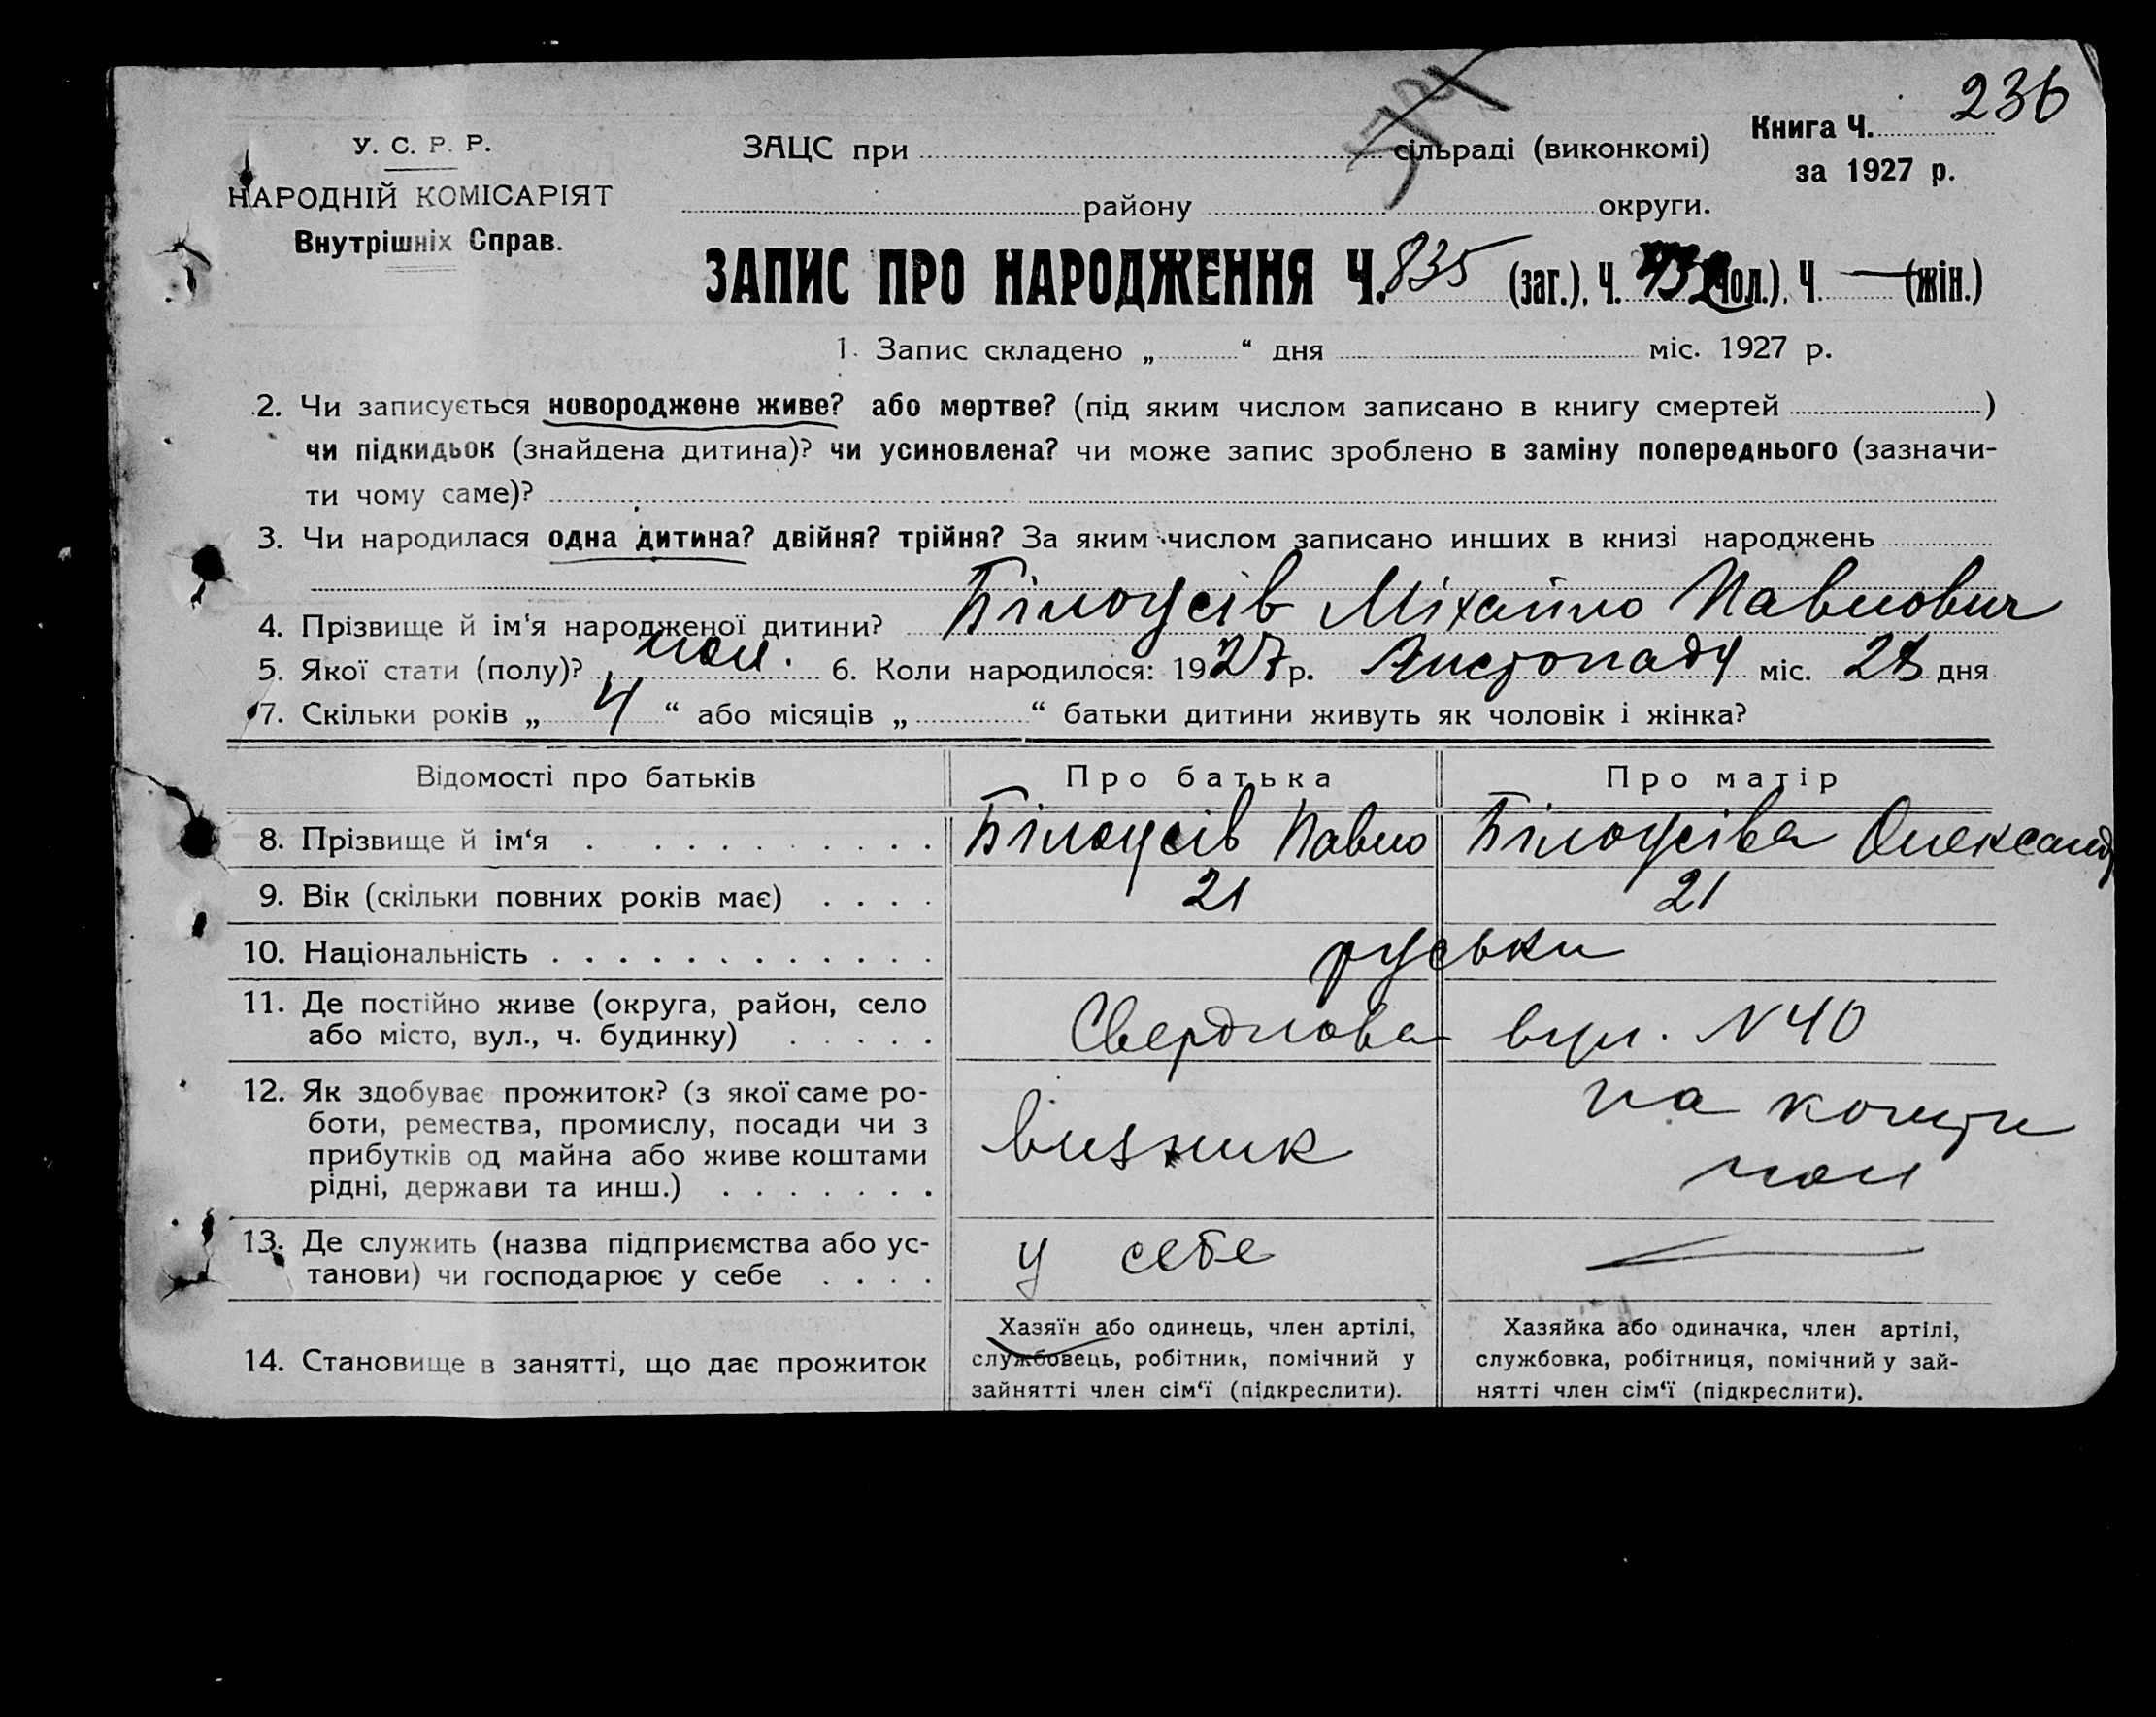 236
У. С. Р. Р.
НАРОДНІЙ КОМІСАРІЯТ
Внутрішніх Справ.
ЗАЦС при сільраді (виконкомі)
району округи.
Книга Ч.
за 1927 р.
ЗАПИС ПРО НАРОДЖЕННЯ Ч. 835 (заг.), Ч. (чол.), Ч. — (жін.)
1. Запис складено „ “ дня міс. 1927 р.
2. Чи записується новороджене живе? або мертве? (під яким числом записано в книгу смертей )
чи підкидьок (знайдена дитина)? чи усиновлена? чи може запис зроблено в заміну попереднього (зазначи-
ти чому саме)?
3. Чи народилася одна дитина? двійня? трійня? За яким числом записано инших в книзі народжень
4. Прізвище й ім‘я народженої дитини? Білоусів Міхайло Павлович
5. Якої стати (полу)? чол. 6. Коли народилося: 1927 р. Листопаду міс. 28 дня
7. Скільки років „ 4 “ або місяців „ “ батьки дитини живуть як чоловік і жінка?
Відомості про батьків Про батька Про матір
8. Прізвище й ім‘я Білоусів Павло Білоусіва Олександ
9. Вік (скільки повних років має) 21 21
10. Національність руськи
11. Де постійно живе (округа, район, село
або місто, вул., ч. будинку) Свердлова вул. N 40
12. Як здобуває прожиток? (з якої саме ро-
боти, ремества, промислу, посади чи з
прибутків од майна або живе коштами
рідні, держави та инш.) візник на кошти
чол
13. Де служить (назва підприємства або ус-
танови) чи господарює у себе у себе —
14. Становище в занятті, що дає прожиток
Хазяїн або одинець, член артілі,
службовець, робітник, помічний у
зайнятті член сім‘ї (підкреслити).
Хазяйка або одиначка, член артілі,
службовка, робітниця, помічний у зай-
нятті член сім‘ї (підкреслити).